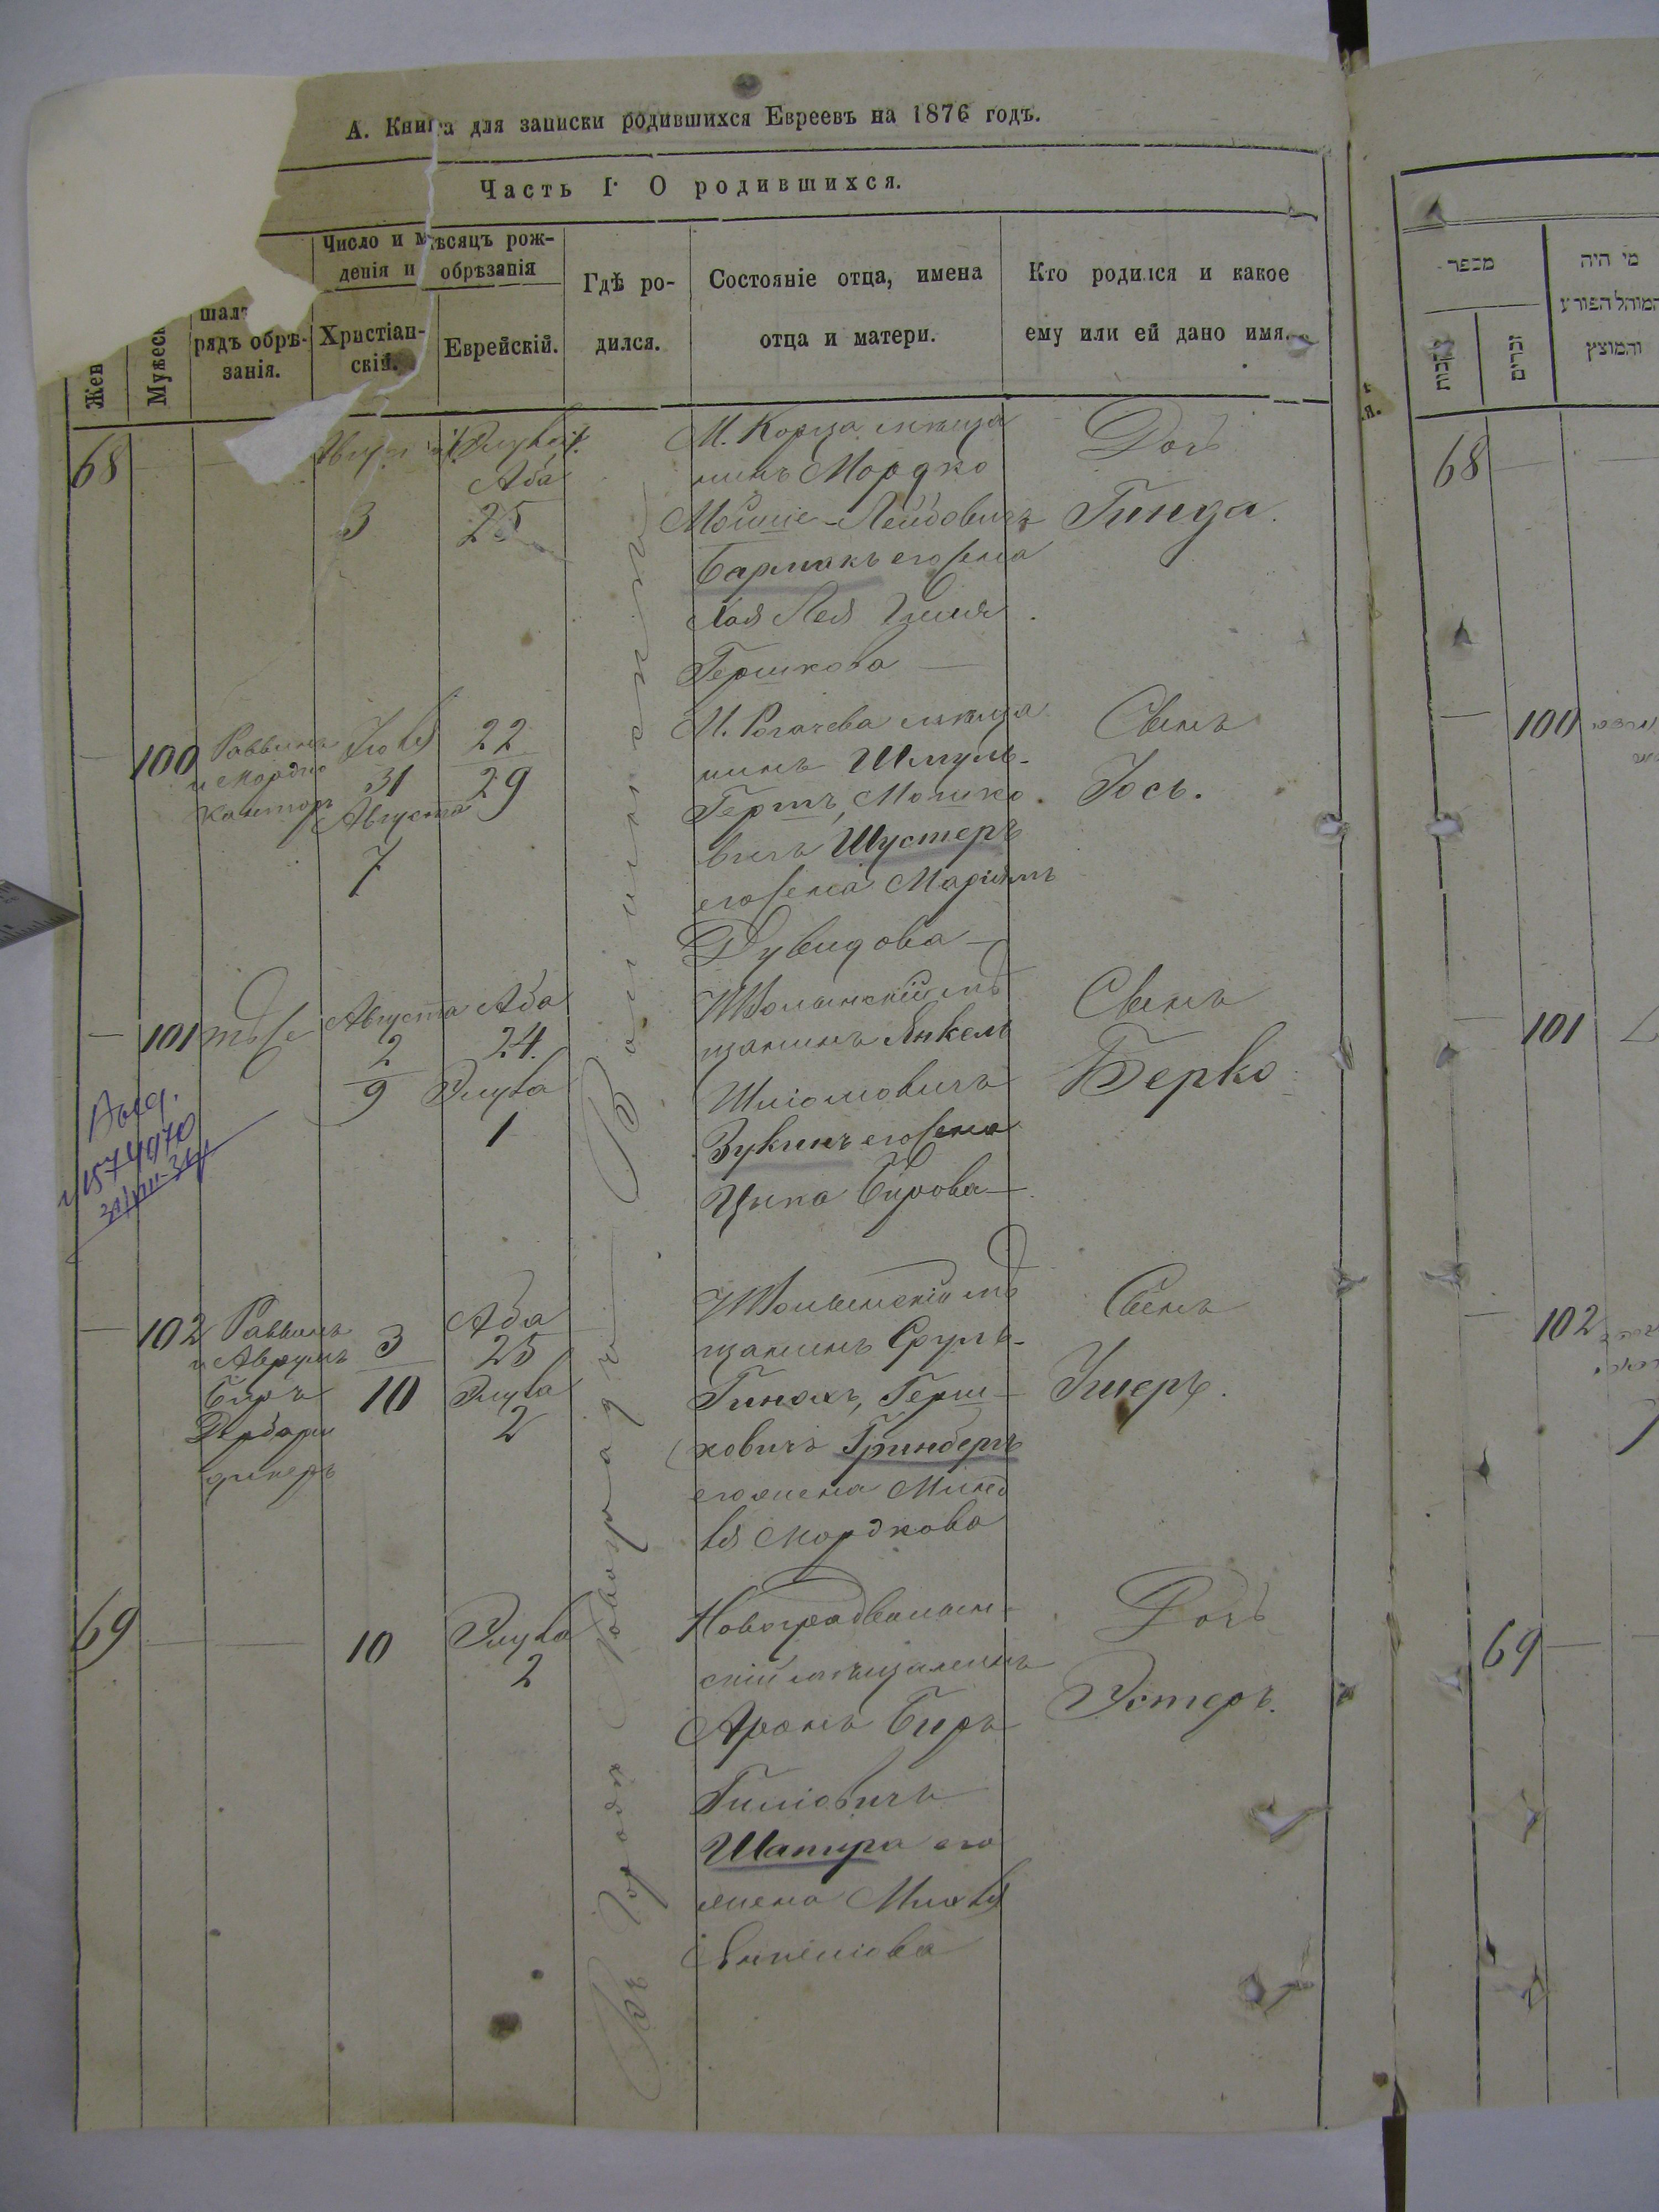 А. Книга для записки родившихся Евреевъ на 1876 годъ.
Часть I. О родившихся.
Жен
Мужеск
шалъ
рядъ обрѣ-
занія.
Число и мѣсяцъ рож-
денія и обрѣзанія
Христіан-
скій.
Еврейскій.
Гдѣ ро-
дился.
Состояніе отца, имена
отца и матери.
Кто родился и какое
ему или ей дано имя.
Въ Городѣ Новоградъ Волынскѣ
68
Августа
3
Аба
25
М. Корца мѣща
нинъ Мордко
Мойше-Лейбовичъ
Бармакъ его жена
Хая Лея
Гершкова
Дочь
Гинда.
100
Раввинъ
и Мордко
Канторъ
Іюля
31
Августа
7
22
29
М. Рогачева мѣща
нинъ Шмуль-
Гершъ, Мошко
вичъ Шустеръ
его жена Маріямъ
Дувидова
Сынъ
Іось.
101
тѣже
Августа
2
9
Аба
24.
Элула
1
НВолынскій мѣ
щанинъ Янкель
Шліомовичъ
Зукинъ его жена
Цыпа Бирова
Сынъ
Берко
102
Раввинъ
и Аврумъ
Беръ
3
10
Аба
25
Элула
2
НВолынскій мѣ
щанинъ Сруль-
Пинхасъ, Герш-
ковичъ Гринберъ
его жена Минд
ля Мордкова
Сынъ
Ушеръ.
69
10
Элула
2
Новоградволын-
скій мѣщанинъ
Аронъ Беръ
Шапира его
жена
Янкеліова
Дочь
Эстеръ.
Выд.
1574970
31/VIII-34
מספר
נקבות
זכרים
מי היה
המוהל הפורע
והמוצץ
68
100
101
102
69